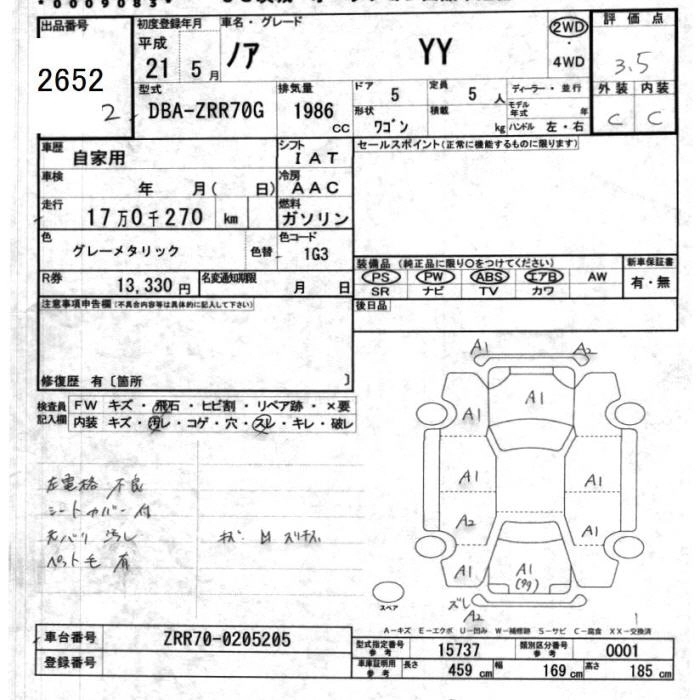 出品番号
2652
2
初度登録年月
平成
21 5 月
車名・グレード
ノア YY
2WD
・
4WD
評価点
3.5
外装 内装
C C
型式
DBA-ZRR70G
排気量
1986 cc
ドア 5
定員 5 人
ディーラー・並行
形状 ワゴン
積載 kg
モデル年式 年
ハンドル 左・右
車歴
自家用
シフト
IAT
セールスポイント(正常に機能するものに限ります)
車検
年 月( 日)
冷房
AAC
走行
17万0千270 km
燃料
ガソリン
色
グレーメタリック
色替
色コード
1G3
装備品 (純正品に限り○をつけてください)
PS PW ABS エアB AW
SR ナビ TV カワ
新車保証書
有・無
R券
13,330 円
名変通知期限
月 日
後日品
注意事項申告欄(不具合内容等は具体的に記入して下さい)
修復歴 有〔箇所 〕
検査員記入欄
FW キズ・飛石・ヒビ割・リペア跡・×要
内装 キズ・汚レ・コゲ・穴・スレ・キレ・破レ
左電格 不良
シートカバー 付
天バリ 汚し
ペット毛 有
A1 A2
A1
A1
A1
A1
A2
A1
A1
A1
スペア
ズレ
A2
A-キズ E-エクボ U-凹み W-補修跡 S-サビ C-腐食 XX-交換済
車台番号
ZRR70-0205205
登録番号
型式指定番号 参考
15737
類別区分番号 参考
0001
車庫証明用 参考
長さ 459 cm
幅 169 cm
高さ 185 cm